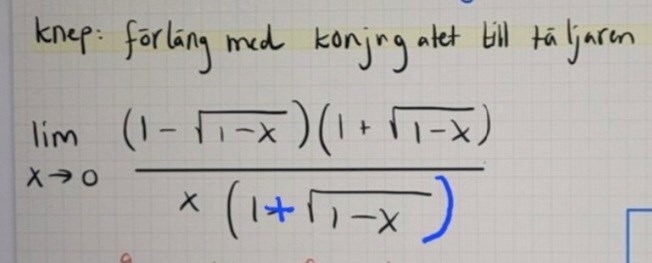 knep: förläng med konjngatet till täljaren
lim x→0 (1 - √1-x)(1 + √1-x)
x (1+√1-x)